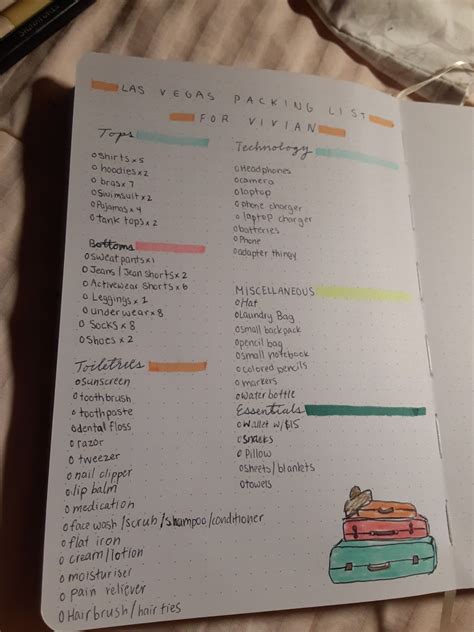 LAS VEGAS PACKING LIST
FOR VIVIAN
Tops
shirts x 5
hoodies x 2
bras x 7
Swimsuit x 2
Pajamas x 4
tank tops x 2
Bottoms
sweatpants x 1
Jeans/Jean shorts x 2
Activewear shorts x 6
Leggings x 1
underwear x 8
Socks x 8
Shoes x 2
Toiletries
sunscreen
toothbrush
toothpaste
dental floss
razor
tweezer
nail clipper
lip balm
medication
face wash/scrub/shampoo/conditioner
flat iron
cream/lotion
moisturiser
pain reliever
Hairbrush/hair ties
Technology
Headphones
camera
laptop
phone charger
laptop charger
batteries
Phone
adapter thingy
MISCELLANEOUS
Hat
Laundry Bag
small backpack
pencil bag
small notebook
colored pencils
markers
water bottle
Essentials
Wallet w/$15
Snacks
Pillow
sheets/blankets
towels